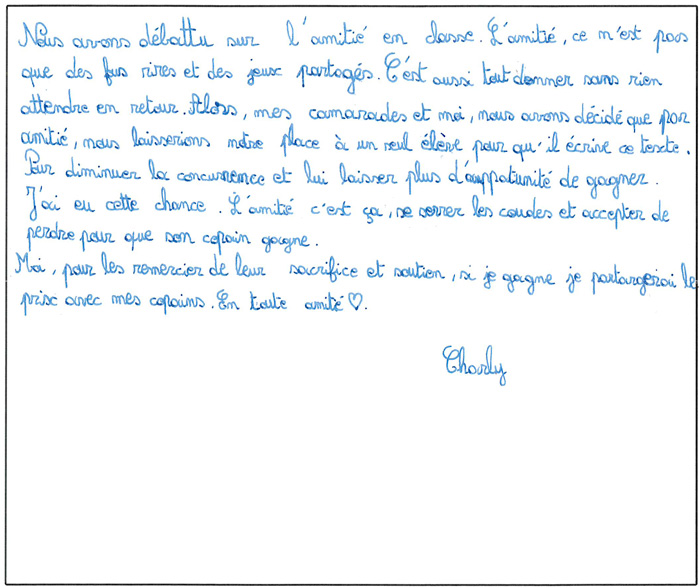 Nous avons débattu sur l'amitié en classe. L'amitié, ce n'est pas
que des fus rires et des jeux partagés. C'est aussi tout donner sans rien
attendre en retour. Alors, mes camarades et moi, nous avons décidé que par
amitié, nous laisserions notre place à un seul élève pour qu'il écrive ce texte.
Pour diminuer la concurrence et lui laisser plus d'oppotunité de gagner.
J'ai eu cette chance. L'amitié c'est ça, se serrer les coudes et accepter de
perdre pour que son copain gagne.
Moi, pour les remercier de leur sacrifice et soutien, si je gagne je partargerai le
prix avec mes copains. En toute amitié ♡.
Charly